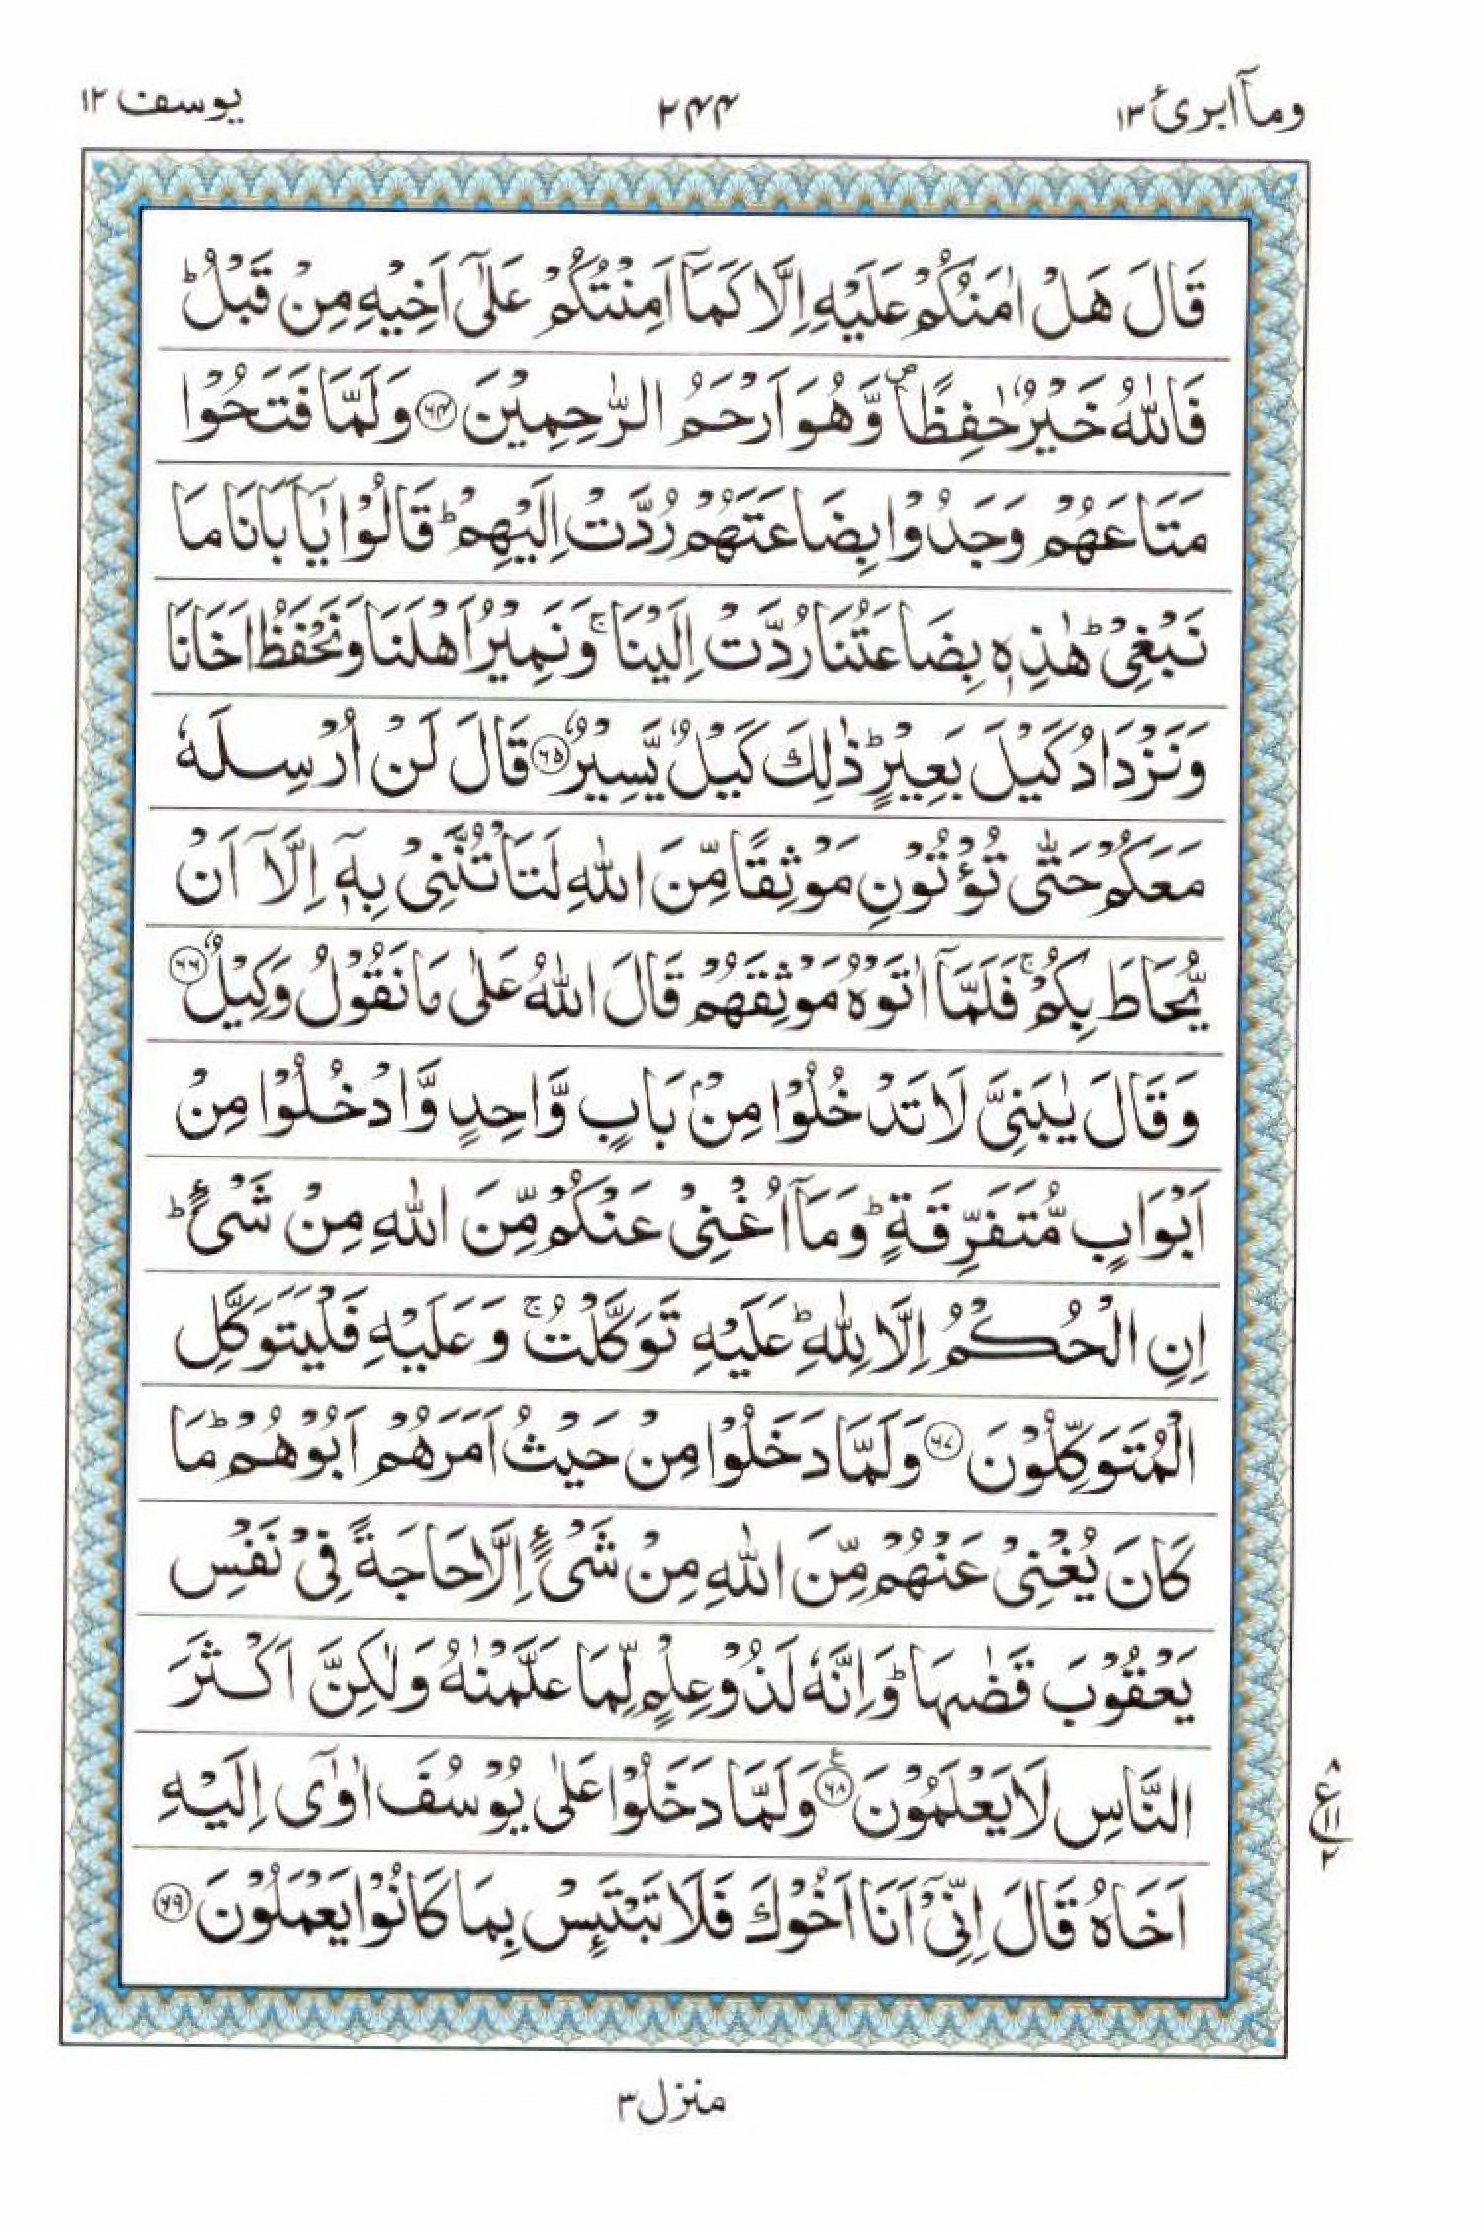 وماۤ ابرئ ١٣ ٢٤٤ يوسف ١٢
قَالَ هَلْ اٰمَنُكُمْ عَلَيْهِ اِلَّا كَمَاۤ اَمِنْتُكُمْ عَلٰۤى اَخِيْهِ مِنْ قَبْلُ ؕ
فَاللّٰهُ خَيْرٌ حٰفِظًا ۪ وَّهُوَ اَرْحَمُ الرّٰحِمِيْنَ ﴿۶۴﴾ وَلَمَّا فَتَحُوْا
مَتَاعَهُمْ وَجَدُوْا بِضَاعَتَهُمْ رُدَّتْ اِلَيْهِمْ ؕ قَالُوْا يٰۤاَبَانَا مَا
نَبْغِىْ ؕ هٰذِهٖ بِضَاعَتُنَا رُدَّتْ اِلَيْنَا ۚ وَنَمِيْرُ اَهْلَنَا وَنَحْفَظُ اَخَانَا
وَنَزْدَادُ كَيْلَ بَعِيْرٍ ؕ ذٰلِكَ كَيْلٌ يَّسِيْرٌ ﴿۶۵﴾ قَالَ لَنْ اُرْسِلَهٗ
مَعَكُمْ حَتّٰى تُؤْتُوْنِ مَوْثِقًا مِّنَ اللّٰهِ لَتَاْتُنَّنِىْ بِهٖۤ اِلَّاۤ اَنْ
يُّحَاطَ بِكُمْ ۚ فَلَمَّاۤ اٰتَوْهُ مَوْثِقَهُمْ قَالَ اللّٰهُ عَلٰى مَا نَقُوْلُ وَكِيْلٌ ﴿۶۶﴾
وَقَالَ يٰبَنِىَّ لَا تَدْخُلُوْا مِنْۢ بَابٍ وَّاحِدٍ وَّادْخُلُوْا مِنْ
اَبْوَابٍ مُّتَفَرِّقَةٍ ؕ وَمَاۤ اُغْنِىْ عَنْكُمْ مِّنَ اللّٰهِ مِنْ شَىْءٍ ؕ
اِنِ الْحُكْمُ اِلَّا لِلّٰهِ ؕ عَلَيْهِ تَوَكَّلْتُ ۚ وَعَلَيْهِ فَلْيَتَوَكَّلِ
الْمُتَوَكِّلُوْنَ ﴿۶۷﴾ وَلَمَّا دَخَلُوْا مِنْ حَيْثُ اَمَرَهُمْ اَبُوْهُمْ ؕ مَا
كَانَ يُغْنِىْ عَنْهُمْ مِّنَ اللّٰهِ مِنْ شَىْءٍ اِلَّا حَاجَةً فِىْ نَفْسِ
يَعْقُوْبَ قَضٰٮهَا ؕ وَاِنَّهٗ لَذُوْ عِلْمٍ لِّمَا عَلَّمْنٰهُ وَلٰكِنَّ اَكْثَرَ
النَّاسِ لَا يَعْلَمُوْنَ ﴿۶۸﴾ ع وَلَمَّا دَخَلُوْا عَلٰى يُوْسُفَ اٰوٰۤى اِلَيْهِ
٨ ع ١١ ٢
اَخَاهُ قَالَ اِنِّىْۤ اَنَا اَخُوْكَ فَلَا تَبْتَئِسْ بِمَا كَانُوْا يَعْمَلُوْنَ ﴿۶۹﴾
منزل ٣